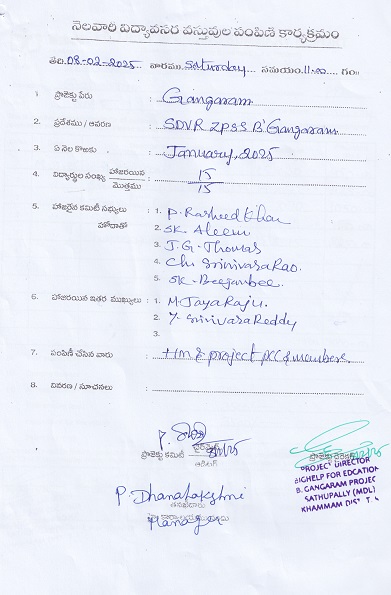 నెలవారి విద్యావసర వస్తువుల పంపిణి కార్యక్రమం
తేది: 08-02-2025 వారము Saturday సమయం: 11-00 గం॥
1. ప్రాజెక్టు పేరు : Gangaram
2. ప్రదేశము / ఆవరణ : SDVR ZPSS B'Gangaram
3. ఏ నెల కొఱకు : January, 2025
4. విద్యార్థుల సంఖ్య హాజరయిన / మొత్తము : 15 / 15
5. హాజరైన కమిటీ సభ్యులు : 1. P. Rasheed Khan
హోదాతో 2. SK. Aleem
3. J. G. Thomas
4. Ch. Srinivasa Rao.
5. SK. Beejanbee.
6. హాజరయిన ఇతర ముఖ్యులు : 1. M. Jaya Raju.
2. Y. Srinivasa Reddy
3.
7. పంపిణీ చేసిన వారు : HM & project PCC members.
8. వివరణ / సూచనలు :
ప్రాజెక్టు కమిటీ
P. Dhanalakshmi
Manager
PROJECT DIRECTOR
BIGHELP FOR EDCATION
B. GANGARAM PROJEC
SATHUPALLY (MDL)
KHAMMAM DIST. T.